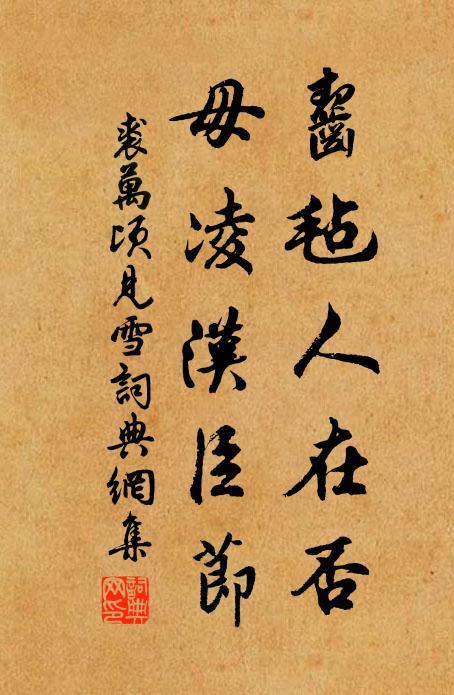 齧毡人在否
毋凌漢臣節
裘萬頃見雪詞典網集
詞典网印